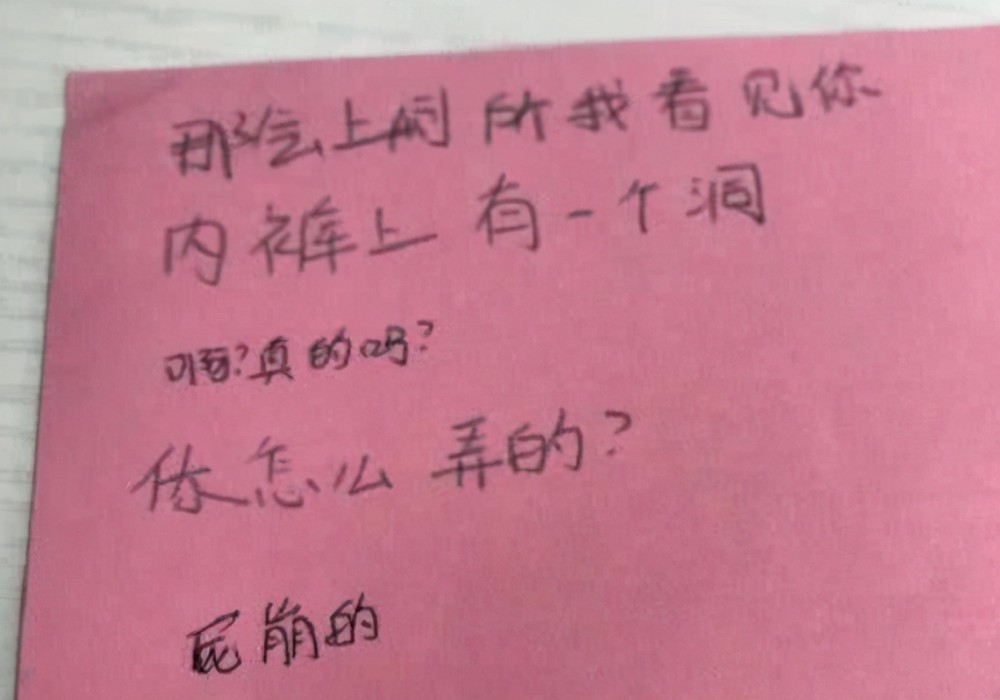 那会上厕所我看见你
内裤上有一个洞
啊?真的吗?
你怎么弄的?
屁崩的